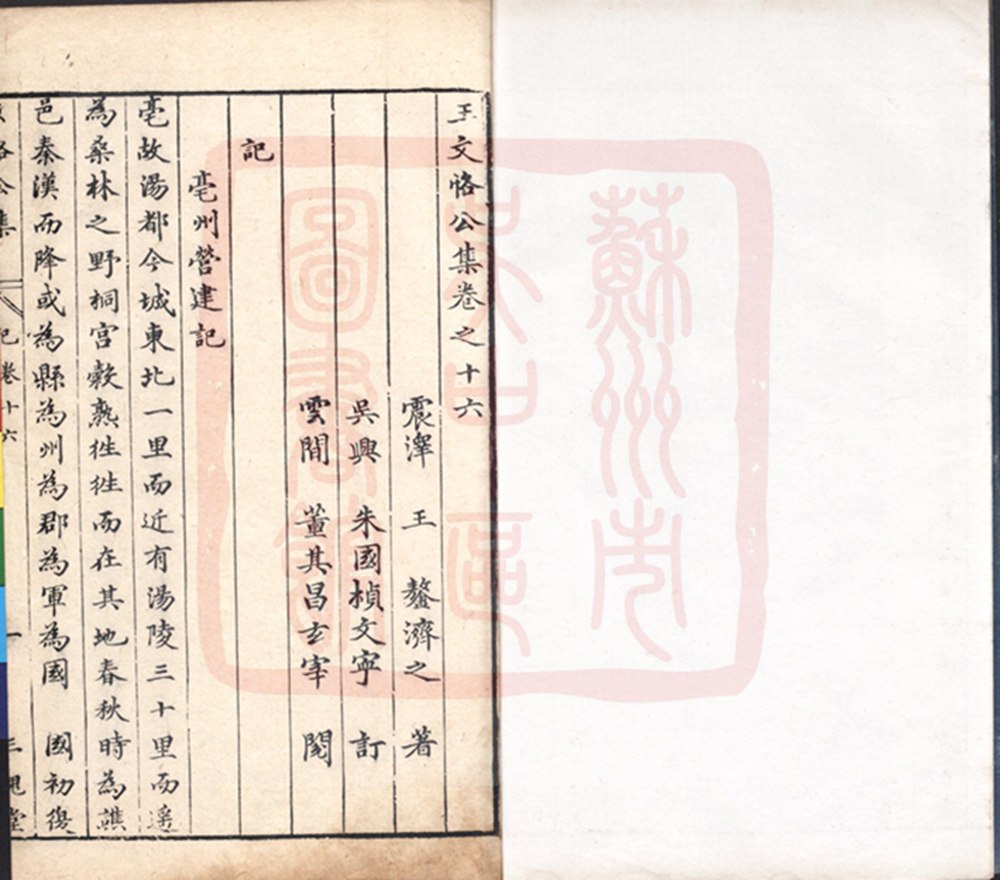 王文恪公集卷之十六
震澤 王 鏊濟之 著
吳興 朱國楨文寧 訂
雲間 董其昌玄宰 閱
記
亳州營建記
亳故湯都今城東北一里而近有湯陵三十里而遥
為桑林之野桐宮穀熟徃徃而在其地春秋時為譙
邑秦漢而降或為縣為州為郡為軍為國 國初復
公集 記卷十六 一 三槐堂
蘇州市
吴中區
圖書館